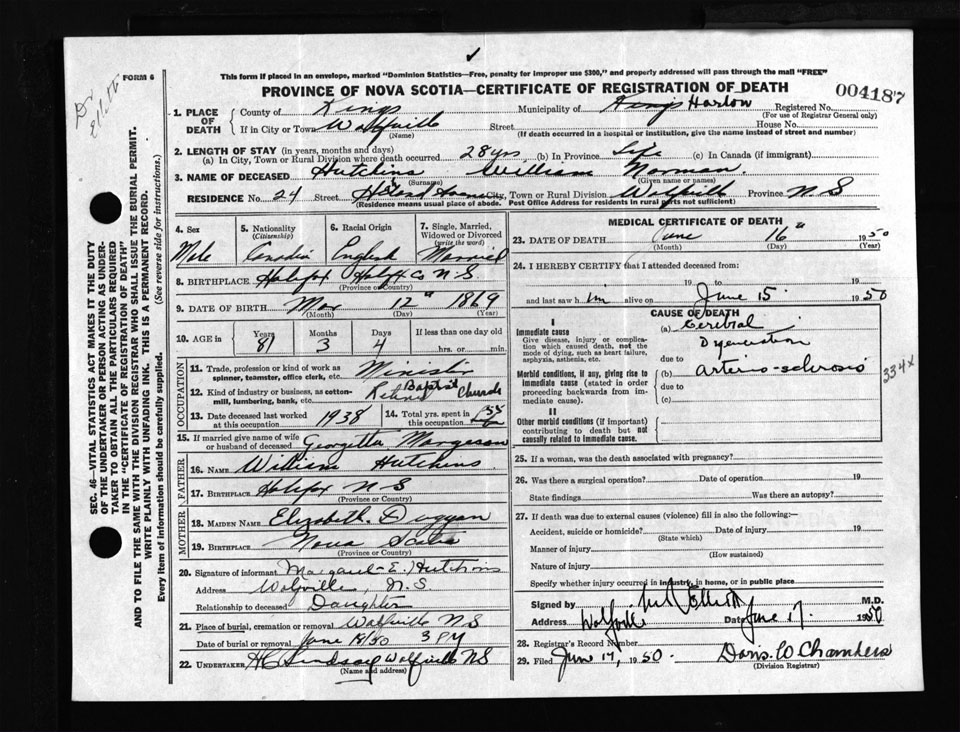 ✓
FORM 6
This form if placed in an envelope, marked "Dominion Statistics—Free, penalty for improper use $300," and properly addressed will pass through the mail "FREE"
PROVINCE OF NOVA SCOTIA—CERTIFICATE OF REGISTRATION OF DEATH
004187
1. PLACE OF DEATH County of Kings Municipality of Kings Horton Registered No.
(For use of Registrar General only)
If in City or Town Wolfville Street House No.
(Name) (If death occurred in a hospital or institution, give the name instead of street and number)
2. LENGTH OF STAY (in years, months and days)
(a) In City, Town or Rural Division where death occurred 28 yrs (b) In Province Life (c) In Canada (if immigrant)
3. NAME OF DECEASED Hutchins William Norman
(Surname) (Given name or names)
RESIDENCE No. 24 Street Highland Avenue City, Town or Rural Division Wolfville Province N S
(Residence means usual place of abode. Post Office Address for residents in rural parts not sufficient)
4. Sex
Male
5. Nationality (Citizenship)
Canadian
6. Racial Origin
English
7. Single, Married, Widowed or Divorced (write the word)
Married
8. BIRTHPLACE Halifax Halfx Co N.S.
(Province or Country)
9. DATE OF BIRTH Mar 12" 1869
(Month) (Day) (Year)
10. AGE in Years Months Days If less than one day old
81 3 4 hrs. or min.
OCCUPATION
11. Trade, profession or kind of work as spinner, teamster, office clerk, etc. Minister
12. Kind of industry or business, as cotton-mill, lumbering, bank, etc. Retired Baptist Church
13. Date deceased last worked at this occupation 1938
14. Total yrs. spent in this occupation
15. If married give name of wife or husband of deceased Georgetta Margeson
FATHER
16. NAME William Hutchins
17. BIRTHPLACE Halifax N S
(Province or Country)
MOTHER
18. MAIDEN NAME Elizabeth Duggan
19. BIRTHPLACE Nova Scotia
(Province or Country)
20. Signature of informant Margaret E. Hutchins
Address Wolfville, N.S
Relationship to deceased Daughter
21. Place of burial, cremation or removal Wolfville N S
Date of burial or removal June 18/50 3 PM
22. UNDERTAKER H C Lindsay Wolfville N S
(Name and address)
MEDICAL CERTIFICATE OF DEATH
23. DATE OF DEATH June 16" 1950
(Month) (Day) (Year)
24. I HEREBY CERTIFY that I attended deceased from:
19 to 19
and last saw him alive on June 15 1950
CAUSE OF DEATH
I
Immediate cause
Give disease, injury or complication which caused death, not the mode of dying, such as heart failure, asphyxia, asthenia, etc.
(a) Cerebral
Degeneration
due to
Morbid conditions, if any, giving rise to immediate cause (stated in order proceeding backwards from immediate cause).
(b) arterio-sclerosis
due to
(c)
334x
II
Other morbid conditions (if important) contributing to death but not causally related to immediate cause.
25. If a woman, was the death associated with pregnancy?
26. Was there a surgical operation? Date of operation 19
State findings Was there an autopsy?
27. If death was due to external causes (violence) fill in also the following:—
Accident, suicide or homicide? Date of injury 19
(State which)
Manner of injury
(How sustained)
Nature of injury
Specify whether injury occurred in industry, in home, or in public place
Signed by M.D.
Address Wolfville Date June 17. 1950
28. Registrar's Record Number
29. Filed June 17, 1950. Doris. W Chambers
SEC. 46—VITAL STATISTICS ACT MAKES IT THE DUTY
OF THE UNDERTAKER OR PERSON ACTING AS UNDER-
TAKER TO OBTAIN ALL THE PARTICULARS REQUIRED
IN THE "CERTIFICATE OF REGISTRATION OF DEATH"
AND TO FILE THE SAME WITH THE DIVISION REGISTRAR WHO SHALL ISSUE THE BURIAL PERMIT.
WRITE PLAINLY WITH UNFADING INK. THIS IS A PERMANENT RECORD.
Every item of information should be carefully supplied. (See reverse side for instructions.)